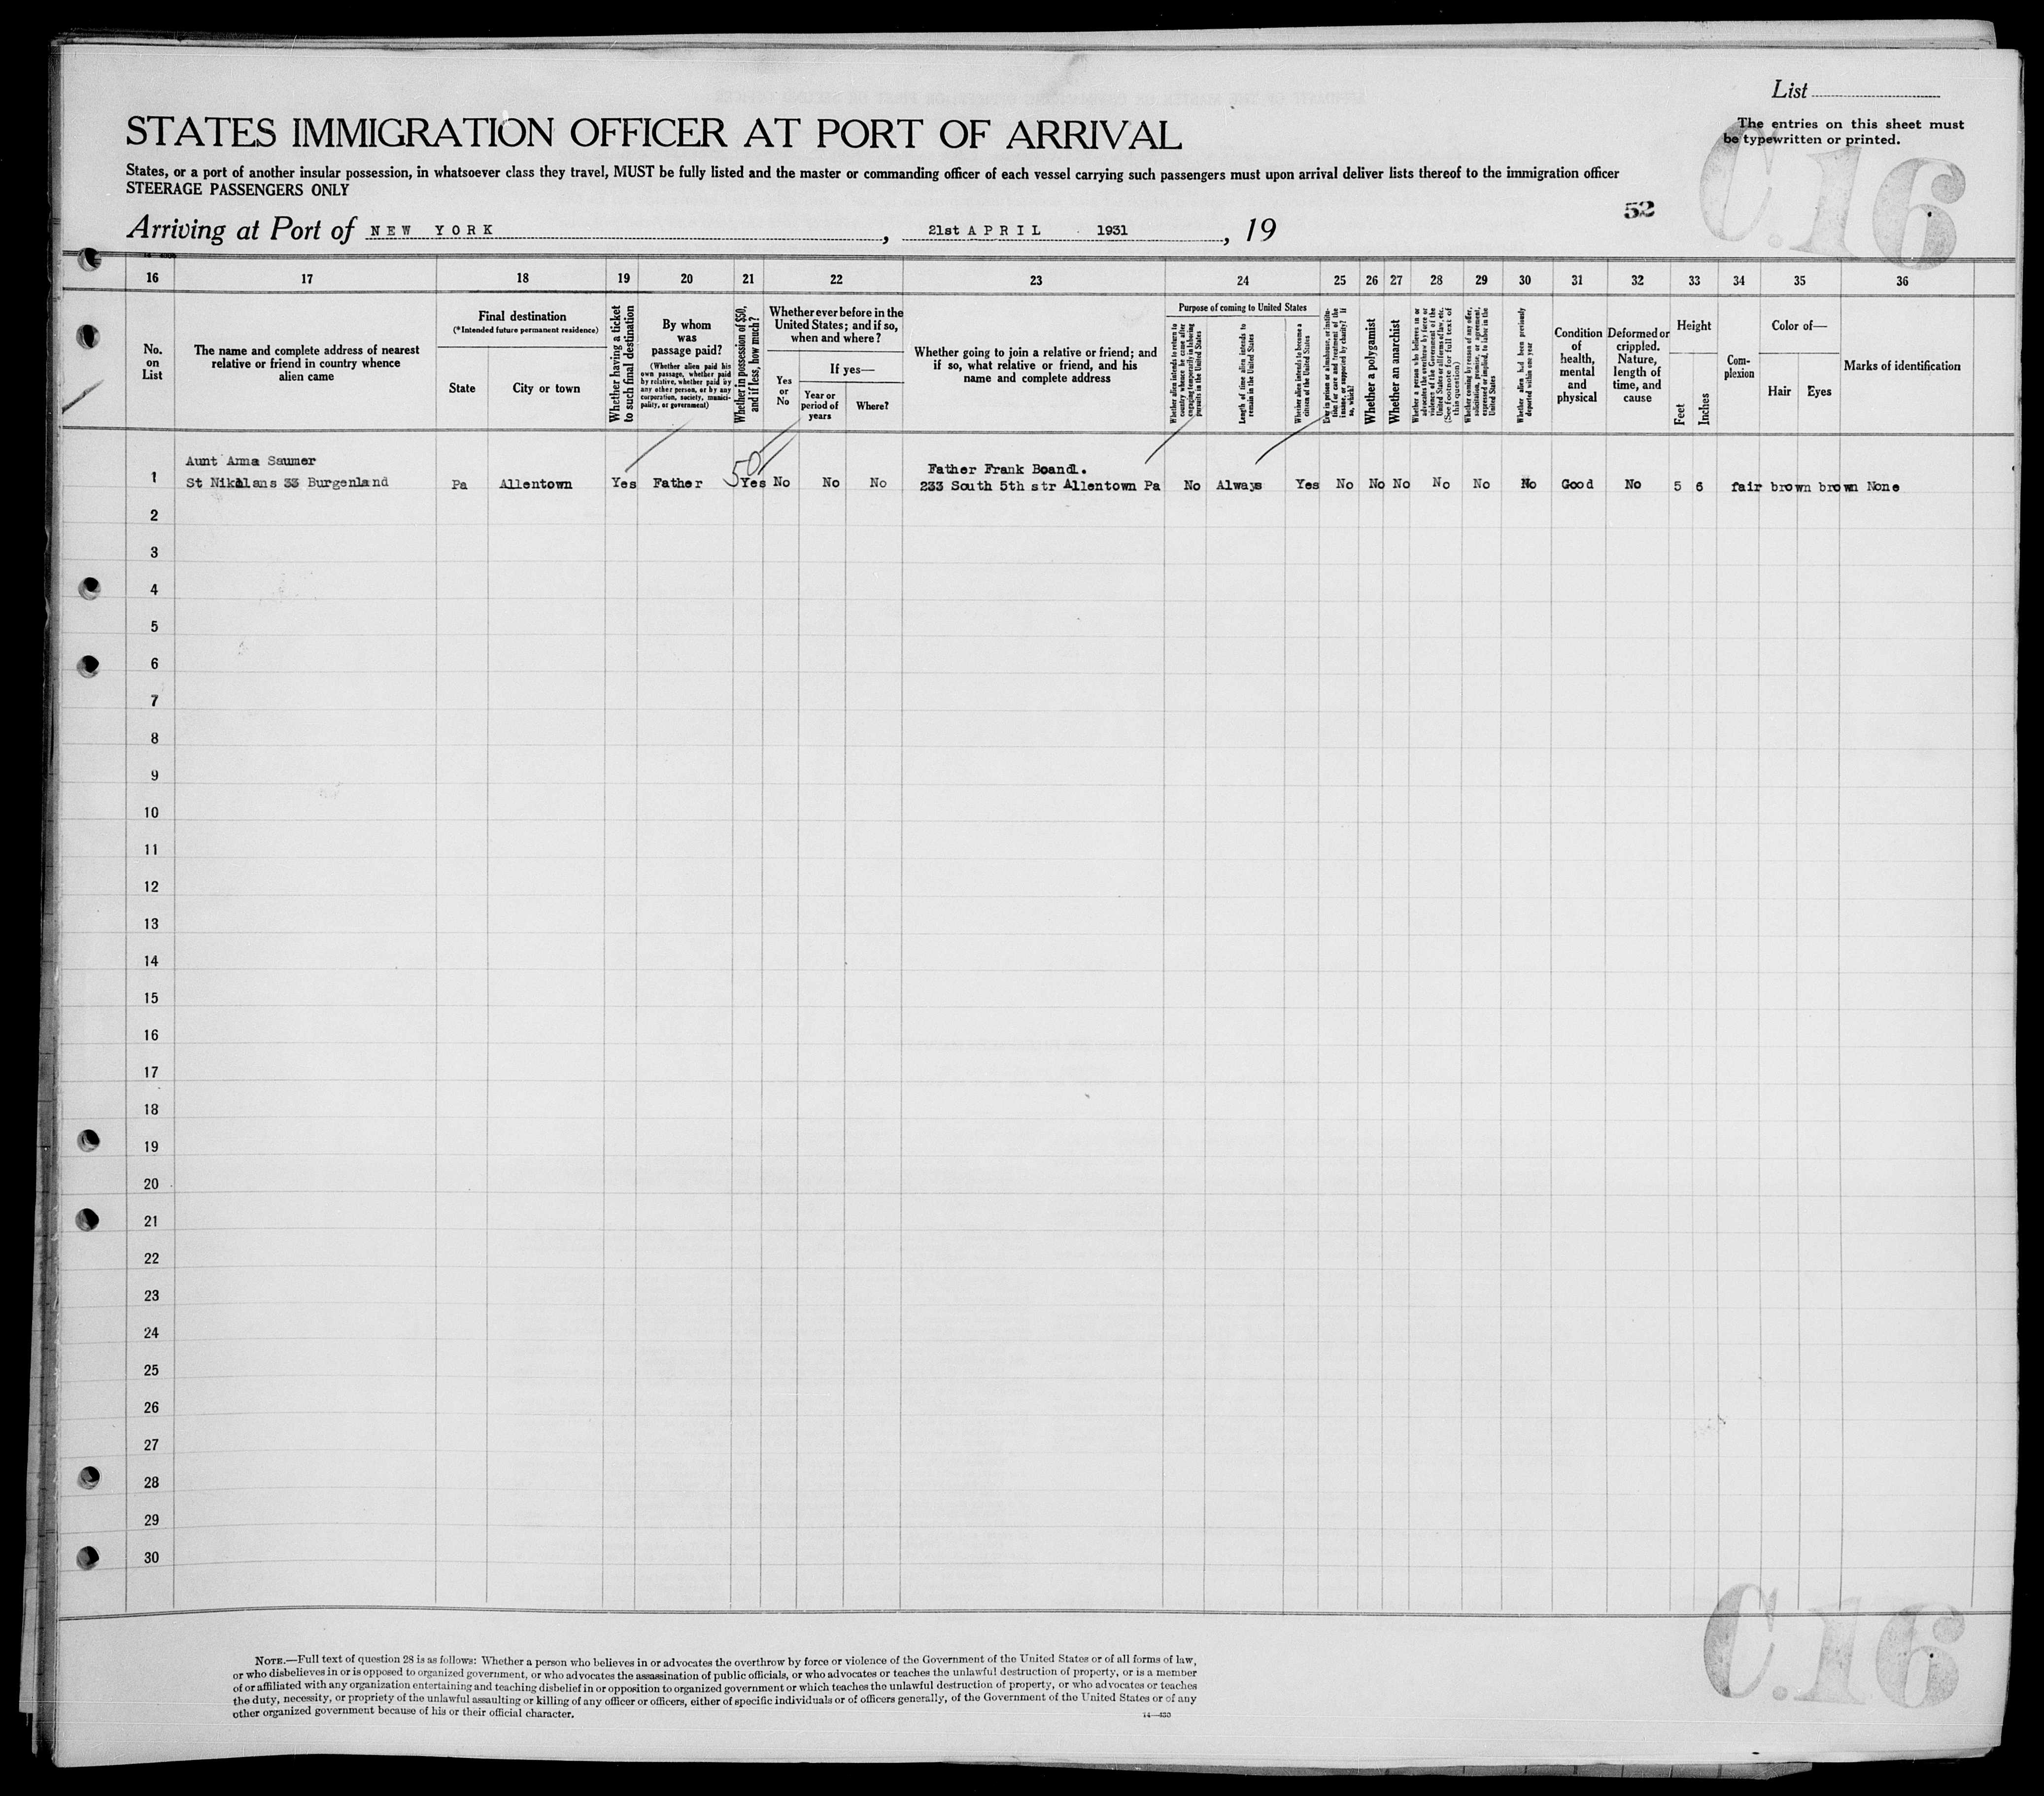 List
The entries on this sheet must
be typewritten or printed.
C.16
STATES IMMIGRATION OFFICER AT PORT OF ARRIVAL
States, or a port of another insular possession, in whatsoever class they travel, MUST be fully listed and the master or commanding officer of each vessel carrying such passengers must upon arrival deliver lists thereof to the immigration officer
STEERAGE PASSENGERS ONLY
52
Arriving at Port of NEW YORK, 21st APRIL 1931, 19
16 17 18 19 20 21 22 23 24 25 26 27 28 29 30 31 32 33 34 35 36
No.
on
List
The name and complete address of nearest
relative or friend in country whence
alien came
Final destination
(*Intended future permanent residence)
State
City or town
Whether having a ticket
to such final destination
By whom
was
passage paid?
(Whether alien paid his
own passage, whether paid
by relative, whether paid by
any other person, or by any
corporation, society, munici-
pality, or government)
Whether in possession of $50,
and if less, how much?
Whether ever before in the
United States; and if so,
when and where?
Yes
or
No
If yes—
Year or
period of
years
Where?
Whether going to join a relative or friend; and
if so, what relative or friend, and his
name and complete address
Purpose of coming to United States
Whether alien intends to return to
country whence he came after
engaging temporarily in laboring
pursuits in the United States
Length of time alien intends to
remain in the United States
Whether alien intends to become a
citizen of the United States
Ever in prison or almshouse, or institu-
tion for care and treatment of the
insane, or supported by charity? If
so, which?
Whether a polygamist
Whether an anarchist
Whether a person who believes in or
advocates the overthrow by force or
violence of the Government of the
United States or all forms of law, etc.
(See footnote for full text of
this question)
Whether coming by reason of any offer,
solicitation, promise, or agreement,
expressed or implied, to labor in the
United States
Whether alien had been previously
deported within one year
Condition
of
health,
mental
and
physical
Deformed or
crippled.
Nature,
length of
time, and
cause
Height
Feet
Inches
Com-
plexion
Color of—
Hair
Eyes
Marks of identification
Aunt Anna Saumer
50
Father Frank Boandl.
1 St Nikolans 33 Burgenland Pa Allentown Yes Father Yes No No No 233 South 5th str Allentown Pa No Always Yes No No No No No No Good No 5 6 fair brown brown None
2
3
4
5
6
7
8
9
10
11
12
13
14
15
16
17
18
19
20
21
22
23
24
25
26
27
28
29
30
C.16
NOTE.—Full text of question 28 is as follows: Whether a person who believes in or advocates the overthrow by force or violence of the Government of the United States or of all forms of law,
or who disbelieves in or is opposed to organized government, or who advocates the assassination of public officials, or who advocates or teaches the unlawful destruction of property, or is a member
of or affiliated with any organization entertaining and teaching disbelief in or opposition to organized government or which teaches the unlawful destruction of property, or who advocates or teaches
the duty, necessity, or propriety of the unlawful assaulting or killing of any officer or officers, either of specific individuals or of officers generally, of the Government of the United States or of any
other organized government because of his or their official character.
14—430